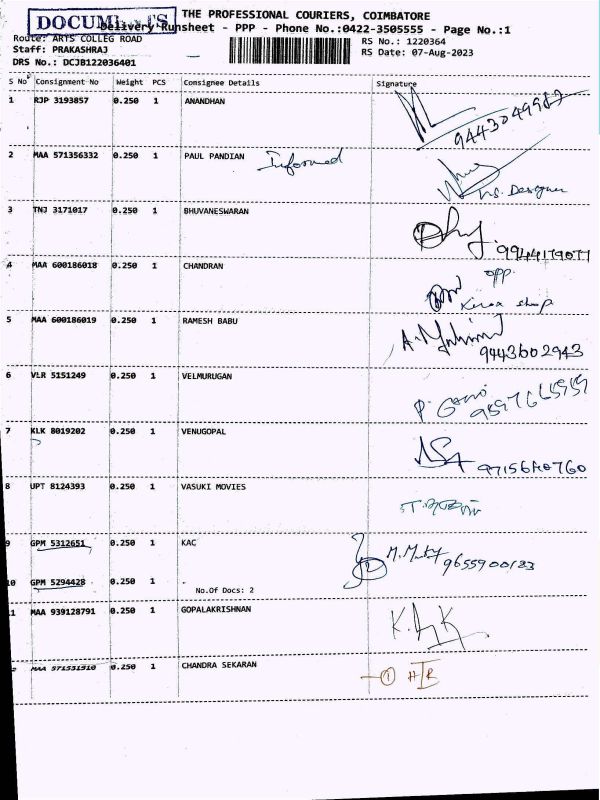 DOCUMENTS
THE PROFESSIONAL COURIERS, COIMBATORE
Delivery Runsheet - PPP - Phone No.:0422-3505555 - Page No.:1
Route: ARTS COLLEG ROAD
RS No.: 1220364
Staff: PRAKASHRAJ
RS Date: 07-Aug-2023
DRS No.: DCJB122036401
S No Consignment No Weight PCS Consignee Details Signature
1 RJP 3193857 0.250 1 ANANDHAN
9443049987
2 MAA 571356332 0.250 1 PAUL PANDIAN Informed
Designer
3 TNJ 3171017 0.250 1 BHUVANESWARAN
9944179077
4 MAA 600186018 0.250 1 CHANDRAN
opp.
Xerox shop
5 MAA 600186019 0.250 1 RAMESH BABU
9443602943
6 VLR 5151249 0.250 1 VELMURUGAN
7 KLK 8019202 0.250 1 VENUGOPAL
8 UPT 8124393 0.250 1 VASUKI MOVIES
9 GPM 5312651 0.250 1 KAC
9655900183
10 GPM 5294428 0.250 1 .
No.Of Docs: 2
11 MAA 939128791 0.250 1 GOPALAKRISHNAN
0.250 1 CHANDRA SEKARAN